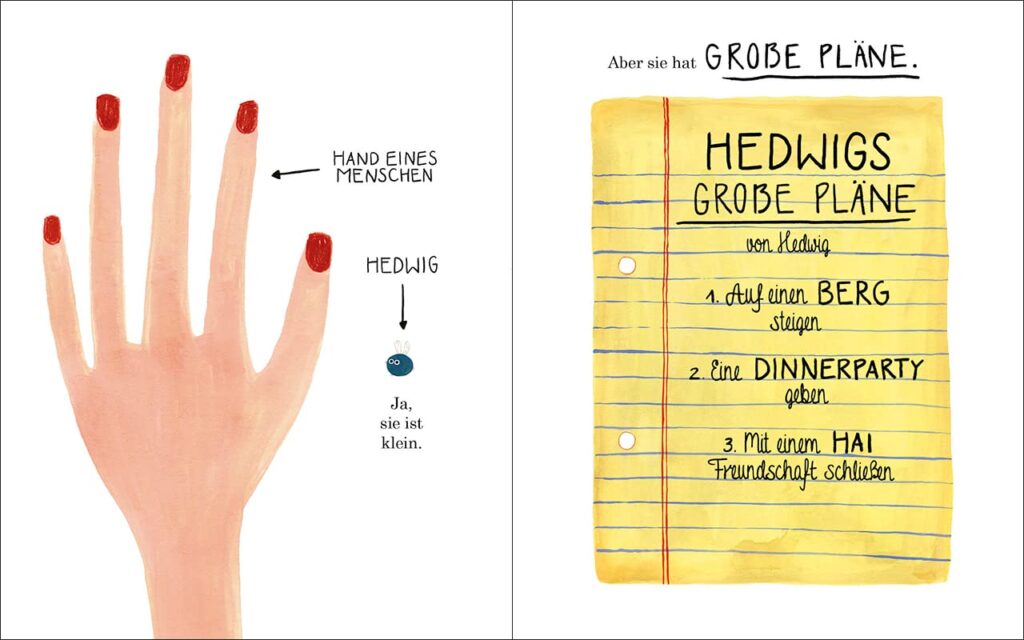 HAND EINES
MENSCHEN
HEDWIG
Ja,
sie ist
klein.
Aber sie hat GROßE PLÄNE.
HEDWIGS
GROßE PLÄNE
von Hedwig
1. Auf einen BERG
steigen
2. Eine DINNERPARTY
geben
3. Mit einem HAI
Freundschaft schließen